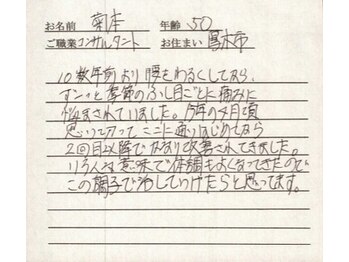 お名前 菊本 年齢 50
ご職業 コンサルタント お住まい 厚木市
10数年前より腰をわるくしてから、
ずーっと季節のふし目ごとに痛みに
悩まされていました。今年の4月頃
思い切って ここに通いはじめてから
2回目以降でかなり改善されてきました。
いろんな意味で体調もよくなってきたので
この調子で治していけたらと思ってます。